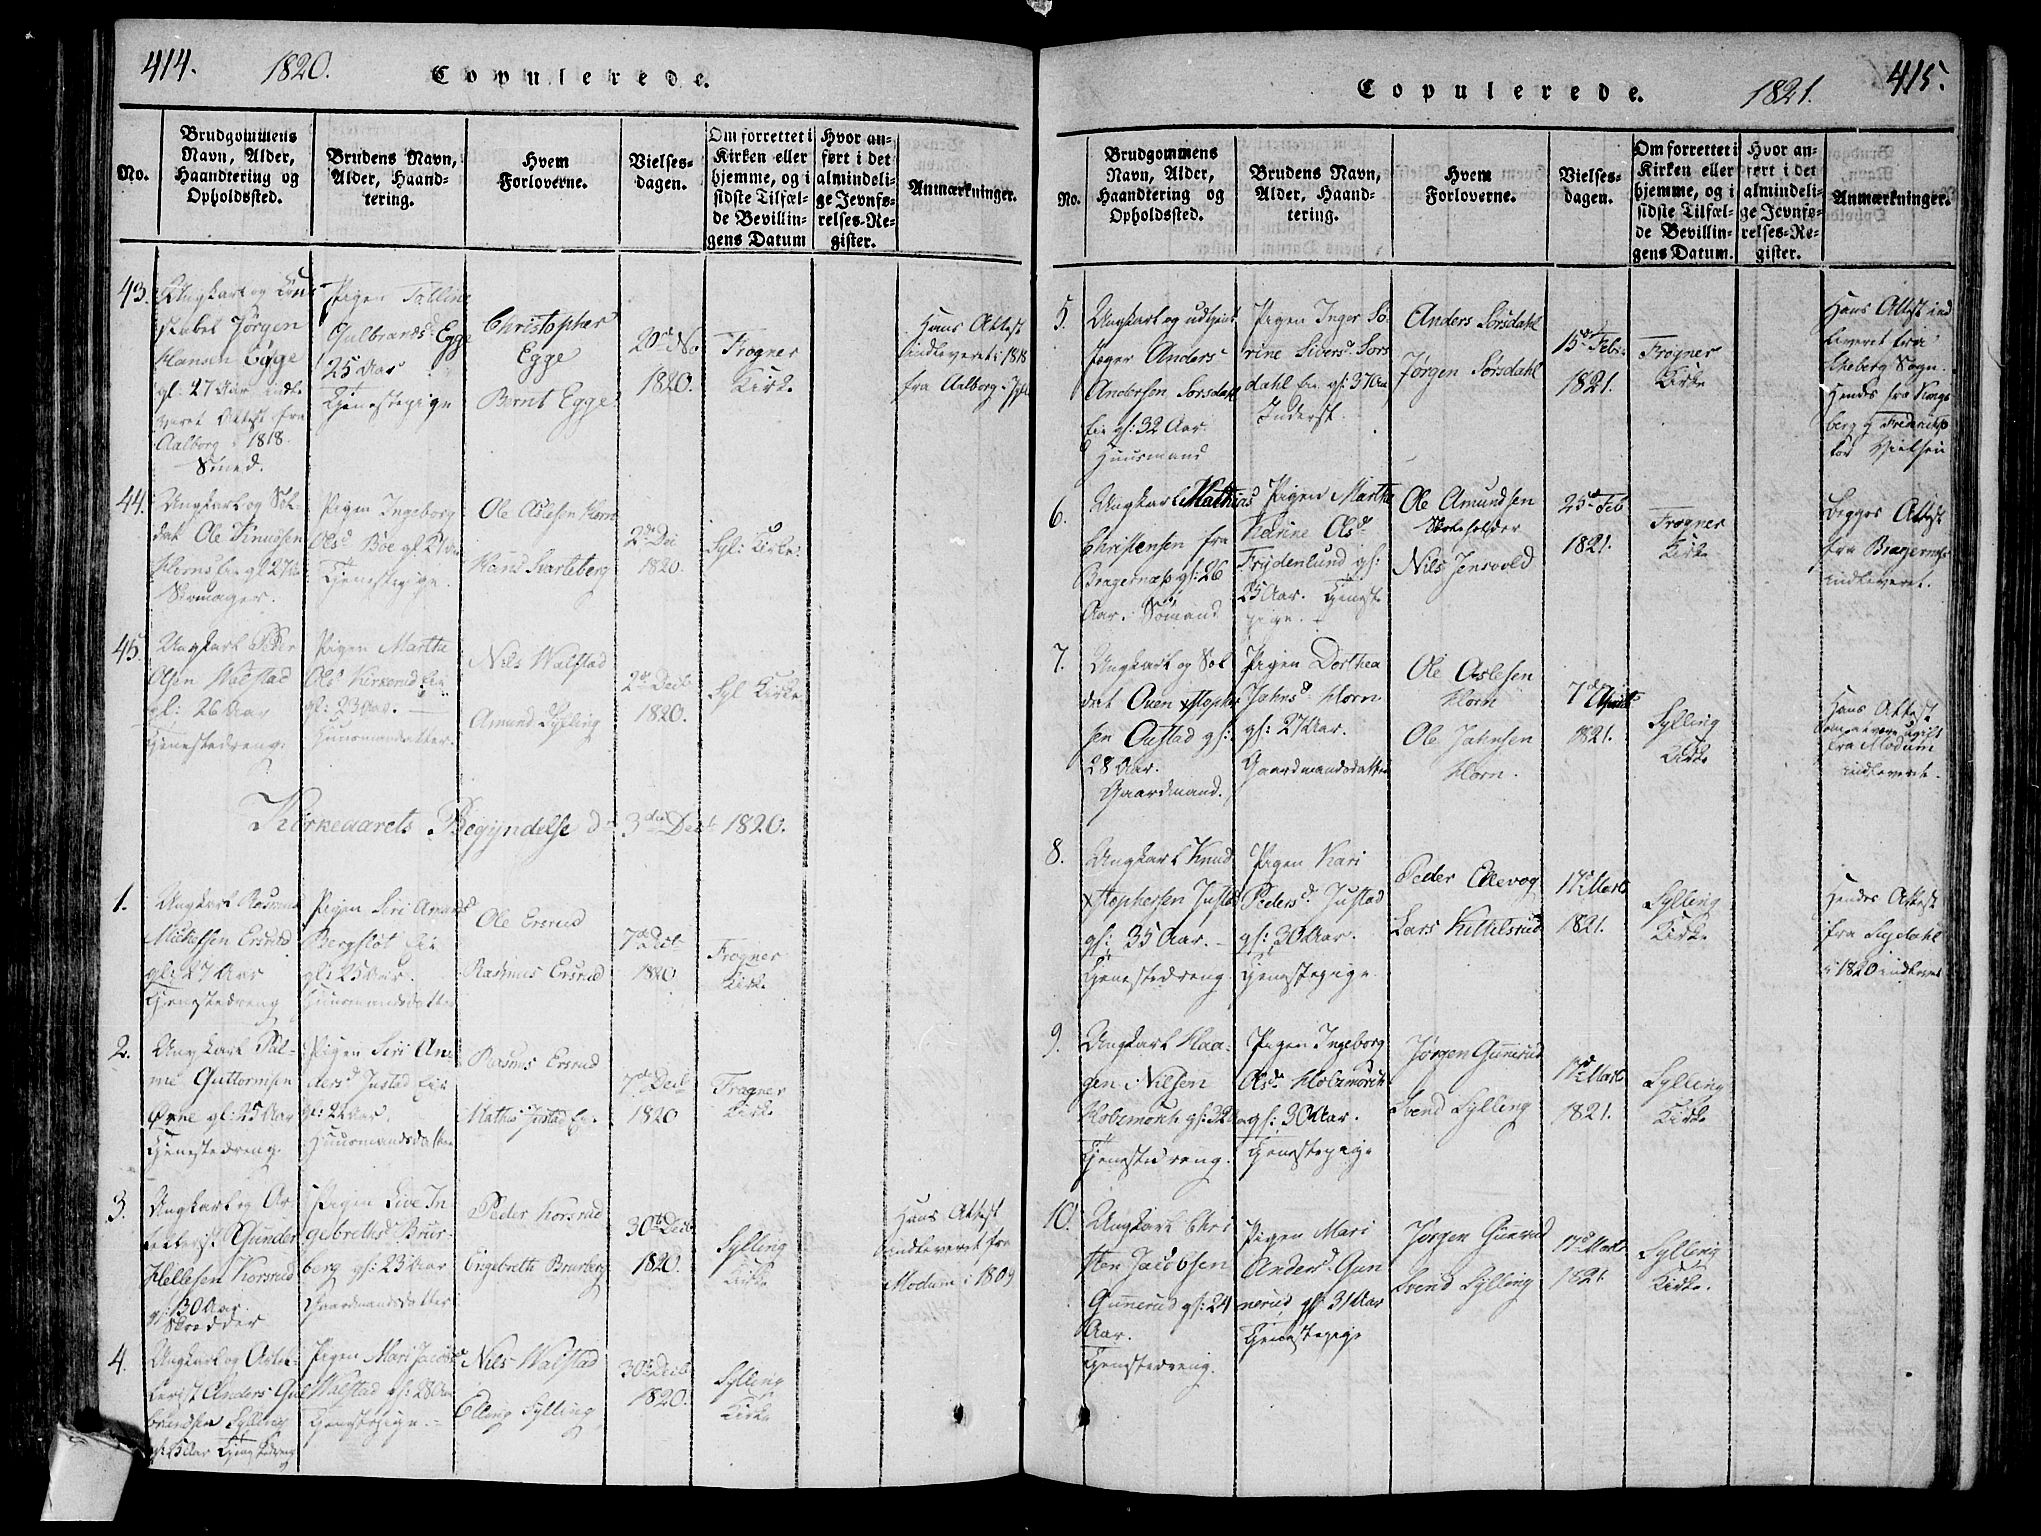 414.
1820.
Copulerede.
No.
Brudgommens
Navn, Alder,
Haandtering og
Opholdssted.
Brudens Navn,
Alder, Haand-
tering.
Hvem
Forloverne.
Vielses-
dagen.
Om forrettet i
Kirken eller
hjemme, og i
sidste Tilfæl-
de Bevillin-
gens Datum
Hvor an-
ført i det
almindeli-
ge Jevnfø-
relses-Re-
gister.
Anmærkninger.
43.
Ungkarl og
Jørgen
Hansen Egge
gl. 27 Aar
Attest fra
Aalborg 1818.
Smed.
Pigen
Gulbrandsd. Egge
25 Aar
Tjenestepige
Christopher
Egge
Bernt Egge
1820.
Frogner
Kirke
Hans Attest
indleveret i 1818
fra Aalborg
44.
Ungkarl og Sol
dat Ole Knudsen
Pigen Ingeborg
Olsd Bøe
Tjenestepige.
Ole Aslesen Horn
Hans Svarteberg
2 Dec
1820.
Syl: Kirke
45.
Ungkarl Peder
Olsen Walstad
gl: 26 Aar
Tjenestedreng.
Pigen Marthe
Olsd Kirkerud
gl: 23 Aar.
Huusmandsdatter.
Nils Walstad
Amund Sylling
2d Decb
1820.
Syl Kirke
Kirkeaarets Begyndelse d. 3die Decb 1820.
1.
Ungkarl Rasmus
Mickelsen Ersrud
gl: 27 Aar
Tjenestedreng
Pigen Siri Amunds
Bergsløt Eie
gl: 25 Aar.
Huusmandsdatter
Ole Ersrud
Rasmus Ersrud
7de Decb
1820
Frogner
Kirke
2.
Ungkarl Pal-
me Guttormsen
gl: 25 Aar
Tjenestedreng.
Pigen Siri An
dersd Justad Eie
Huusmandsdatter
Rasmus Ersrud
Mathis Justad Eie.
7de Decb
1820
Frogner
Kirke
3.
Ungkarl og Ar
Gunder
Hellesen Korsrud
gl: 30 Aar.
Skrædder
Pigen Live In
gebrethsd Brur-
berg gl: 23 Aar
Gaardmandsdatter
Peder Korsrud
Engebreth Brurberg
30te Decb
1820.
Sylling
Kirke
Hans Attest
indleveret fra
Modum i 1809
4.
Ungkarl og
Anders Gul
brandsen Sylling
gl: 25 Aar Tjenestedreng
Pigen Mari Jacobsd
Walstad gl: 28 Aar
Tjenestepige.
Nils Walstad
Elling Sylling
30te Decb
1820.
Sylling
Kirke
415.
Copulerede.
1821.
No.
Brudgommens
Navn, Alder,
Haandtering og
Opholdssted.
Brudens Navn,
Alder, Haand-
tering.
Hvem
Forloverne.
Vielses-
dagen.
Om forrettet i
Kirken eller
hjemme, og i
sidste Tilfæl-
de Bevillin-
gens Datum.
Hvor an-
ført i det
almindeli-
ge Jevnfø-
relses-Re-
gister.
Anmærkninger.
5.
Ungkarl og udtjent
Jæger Anders
Andersen Sorsdahl
Eie gl: 32 Aar
Huusmand
Pigen Inger Sø
rine Siversd. Sors
dahl Eie. gl: 37 Aar
Inderst.
Anders Sorsdahl
Jørgen Sørsdahl
15de Febr
1821.
Frogner
Kirke
Hans Attest ind
leveret fra
Sogn.
Hendes fra Kongs
berg
Nielsen
6.
Ungkarl Mathias
Christensen fra
Bragernæs gl: 26
Aar. Sömand
Pigen Marthe
Karine Olsd
Frydenlund gl:
25 Aar. Tjeneste
pige.
Ole Amundsen
Skoleholder
Nils Jensvold
25de Feb
1821.
Frogner
Kirke
Begges Attest
fra Bragernæs
indleveret.
7.
Ungkarl og Sol
dat Ouen Xstopher
sen Oustad gl:
28 Aar.
Gaardmand.
Pigen Dorthea
Jahnsd Horn
gl: 27 Aar.
Gaardmandsdatter
Ole Aslesen
Horn
Ole Jahnsen
Horn.
7de April
1821.
Sylling
Kirke
Hans Attest
som at være ugift
fra Modum
indleveret.
8.
Ungkarl Knud
Xstophersen Justad
gl: 35 Aar.
Tjenestedreng.
Pigen Kari
Pedersd. Justad
gl: 30 Aar.
Tjenestepige.
Peder Ellevog
Lars Kittilsrud
17de Marts
1821.
Sylling
Kirke
Hendes Attest
fra Sigdahl
i 1820 indleveret
9.
Ungkarl Haa-
gen Nilsen
Holsmorck gl: 32
Tjenestedreng.
Pigen Ingeborg
Olsd. Holsmorck
gl: 30 Aar.
Tjenestepige
Jørgen Gunerud
Svend Sylling
17de Marts
1821.
Sylling
Kirke
10.
Ungkarl Chri
sten Jacobsen
Gunerud gl: 24
Aar.
Tjenestedreng.
Pigen Mari
Andersd. Gun
nerud gl: 31 Aar
Tjenestepige
Jørgen Gunerud
Svend Sylling
17de Marts
1821.
Sylling
Kirke.